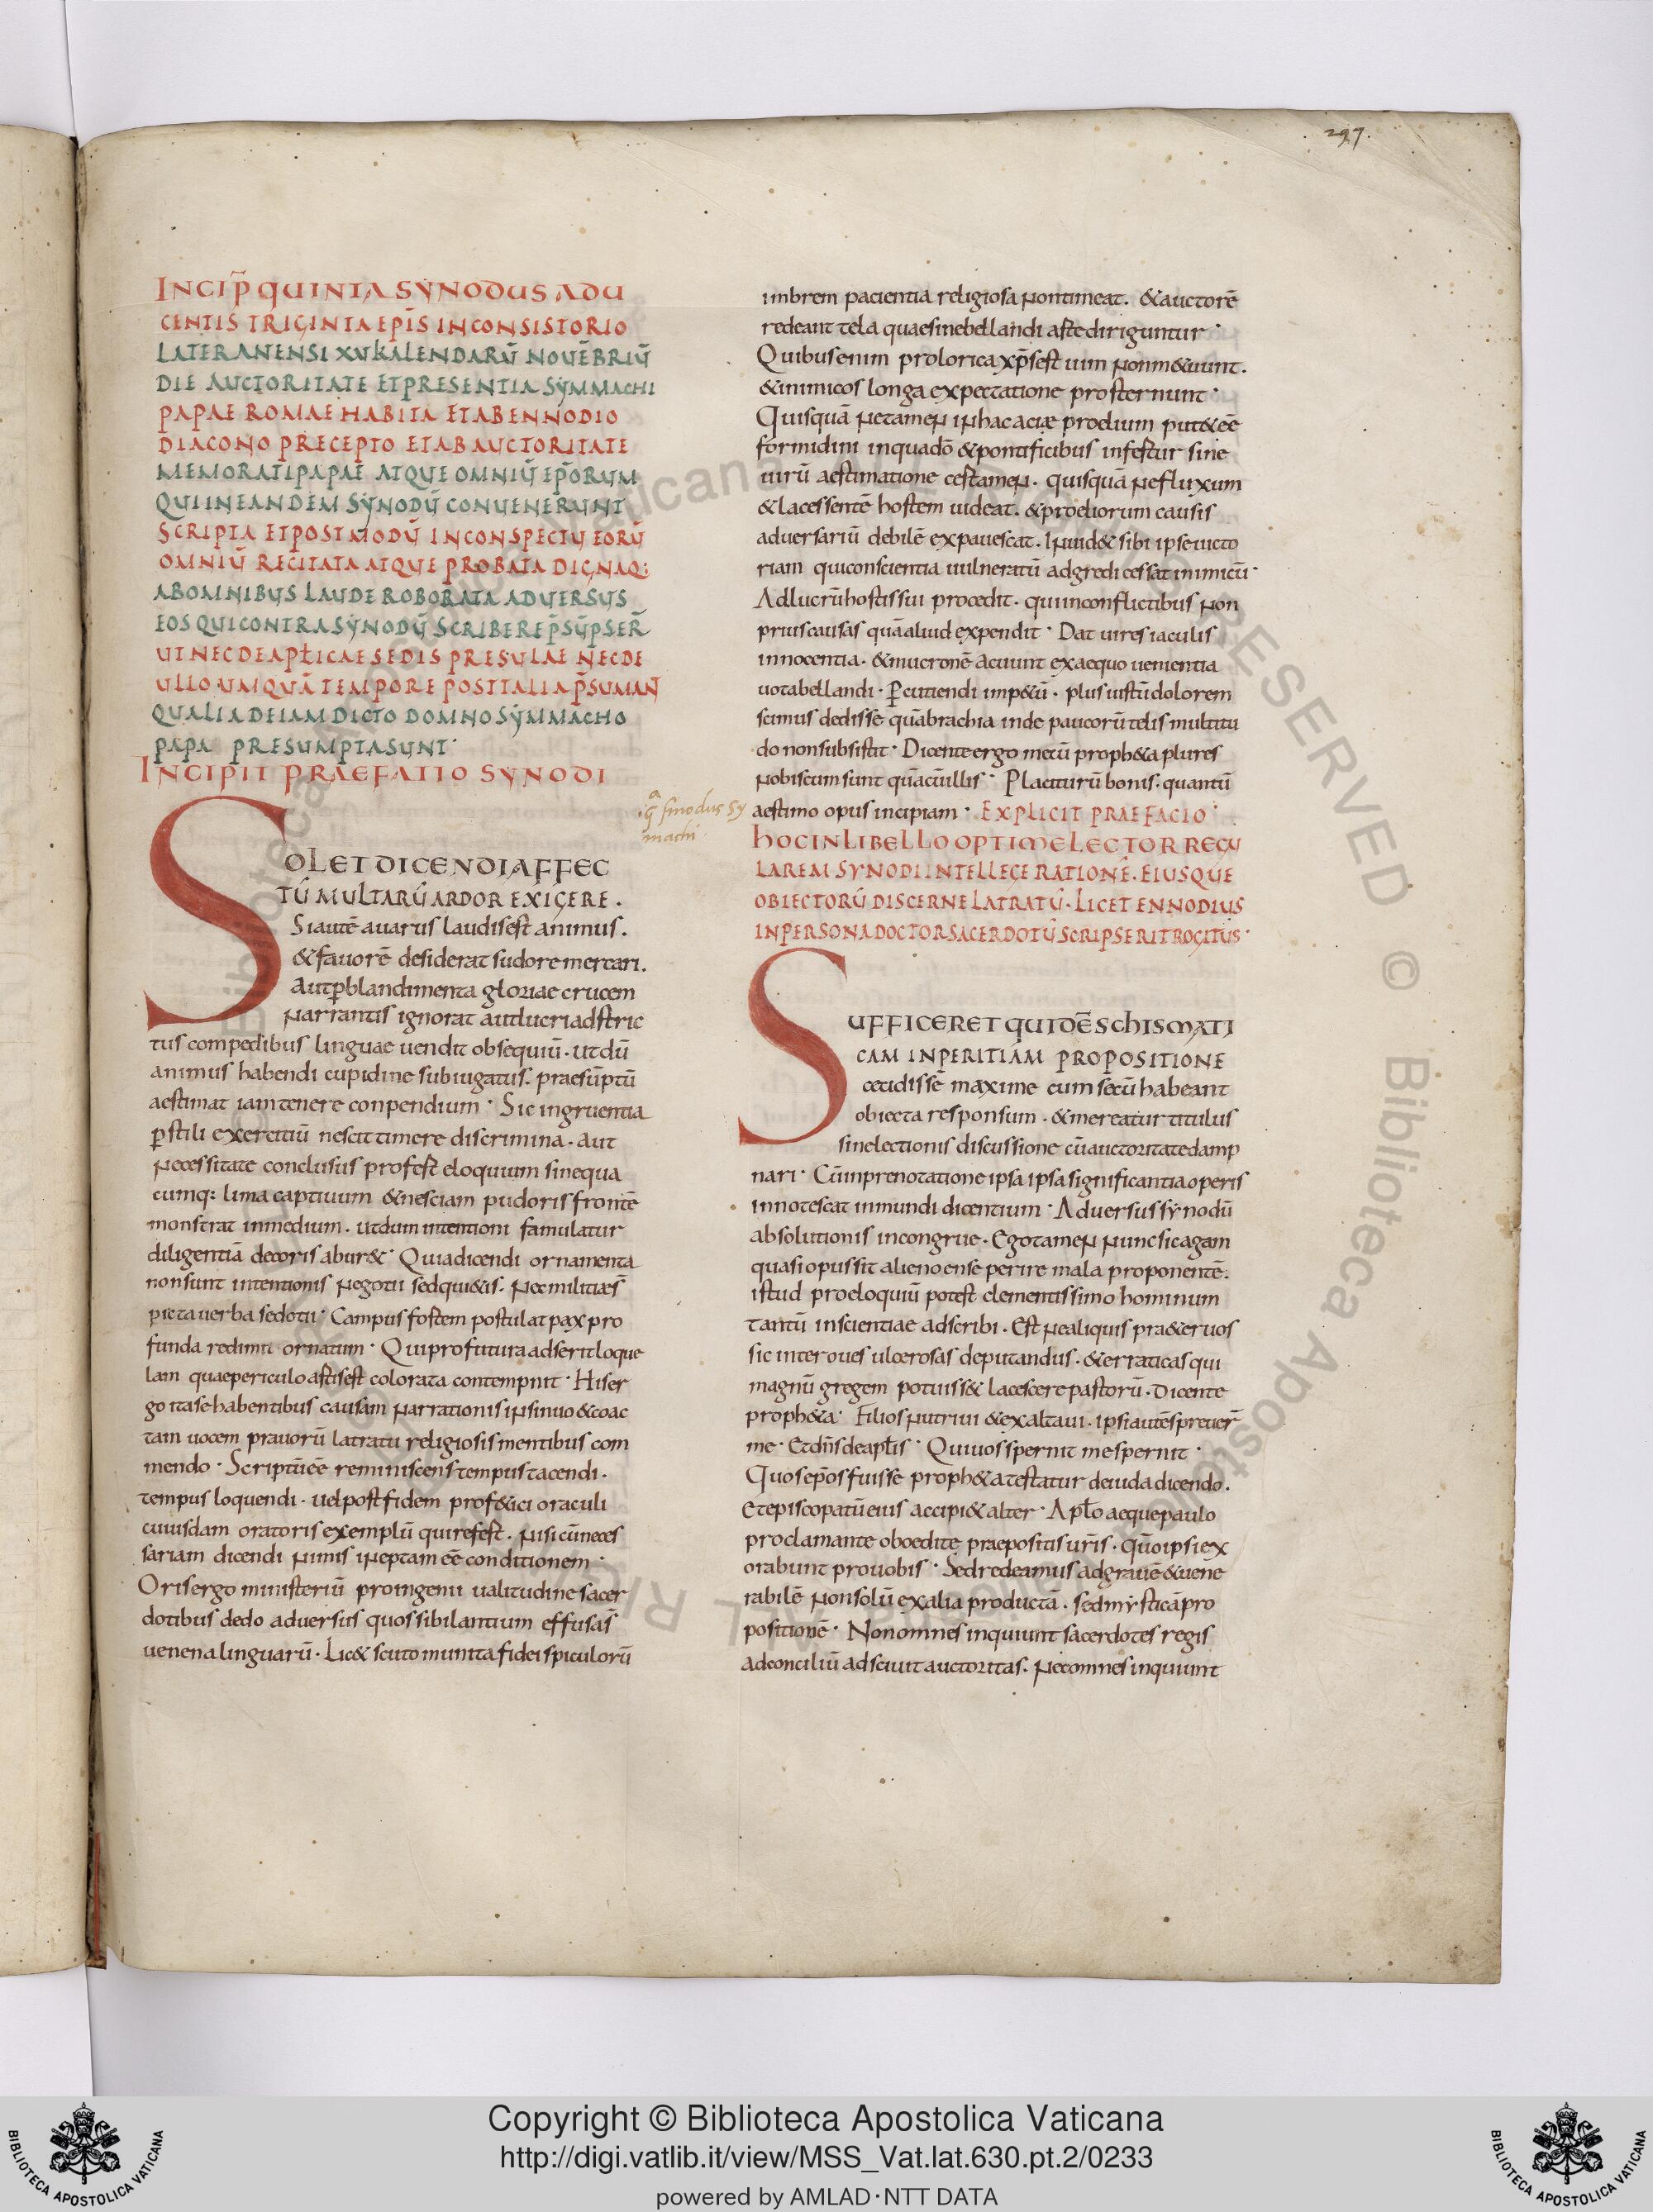 297.
INCIP̄ QUINTA SYNODUS A DU
CENTIS TRIGINTA EPĪS IN CONSISTORIO
LATERANENSI XV KALENDARŪ NOVĒBRIŪ
DIE AUCTORITATE ET PRESENTIA SYMMACHI
PAPAE ROMAE HABITA ET AB ENNODIO
DIACONO PRECEPTO ET AB AUCTORITATE
MEMORATI PAPAE ATQUE OMNIŪ EPŌRUM
QUI IN EANDEM SYNODŪ CONVENERUNT
SCRIPTA ET POSTMODŪ IN CONSPECTU EORŪ
OMNIŪ RECITATA ATQUE PROBATA DIGNAQ:
AB OMNIBUS LAUDE ROBORATA ADVERSUS
EOS QUI CONTRA SYNODŪ SCRIBERE P̄SŪPSER̄
UT NEC DE APŁICAE SEDIS PRESULAE NEC DE
ULLO UMQUĀ TEMPORE POST TALIA P̄SUMANT
QUALIA DE IAM DICTO DOMNO SYMMACHO
PAPA PRESUMPTA SUNT·
INCIPIT PRAEFATIO SYNODI
SOLET DICENDI AFFEC
TŪ MULTARŪ ARDOR EXIGERE.
Si autē avarus laudis est animus.
& favorē desiderat sudore mercari.
Aut p̄ blandimenta gloriae crucem
narrantis ignorat aut lucri adstric
tus compedibus linguae vendit obsequiū. ut dū
animus habendi cupidine subiugatus. praesūptū
aestimat iam tenere conpendium· Sic ingruentia
p̄ stili exercitiū nescit timere discrimina. aut
necessitate conclusus profest eloquium sine qua
cumq: lima captivum & nesciam pudoris frontē
monstrat in medium. ut dum intentioni famulatur
diligentiā decoris abur&· Quia dicendi ornamenta
non sunt intentionis negotii sed qui&is. Nec militiae s̄
picta verba sed otii· Campus fostem postulat pax pro
funda redimti ornatum· Qui profutura adserit loque
lam quae periculo astis est colorata contempnit· His er
go ita se habentibus causam narrationis insinuo & coac
tam vocem pravorū latratu religiosis mentibus com
mendo· Scriptū eē reminiscens tempus tacendi.
tempus loquendi. vel post fidem prof&ici oraculi
cuiusdam oratoris exemplū qui refest. nisi cū neces
sariam dicendi nimis ineptam eē conditionem·
Oris ergo ministeriū pro ingenii valitudine sacer
dotibus dedo adversus quos sibilantium effusa s̄
venena linguarū· Lic& scuto munita fidei spiculorū
·g̅ sinodus sy
machi·
imbrem pacientia religiosa non timeat. & auctorē
redeant tela quae sine bellandi aste diriguntur·
Quibus enim pro lorica xp̄s est vim non m&uunt.
& inimicos longa expectatione prosternunt·
Quisquā ne tamen in hac acie prodium put& eē
formidini in quadō & pontificibus infestur sine
virū aestimatione cestamen. quisquā ne fluxum
& lacessentē hostem videat. & proeliorum causis
adversariū debilē expavescat. Invid& sibi ipse victo
riam qui conscientia vulneratū adgredi cessat inimicū·
Ad lucrū hostis sui procedit. qui in conflictibus non
prius causas quā aliud expendit· Dat vires iaculis
innocentia. & mucronē acuunt ex aequo venientia
vota bellandi· P̄cutiendi imp&ū. plus iustū dolorem
scimus dedisse quā brachia inde paucorū telis multitu
do non subsistit· Dicente ergo mecū proph&a plures
nobiscum sunt quā cū illis· Placiturū bonis. quantū
aestimo opus incipiam· EXPLICIT PRAEFACIO·
HOC IN LIBELLO OPTIME LECTOR REGU
LAREM SYNODI INTELLEGE RATIONĒ. EIUSQUE
OBIECTORŪ DISCERNE LATRATŪ. LICET ENNODIUS
IN PERSONA DOCTOR SACERDOTŪ SCRIPSERIT ROGITUS·
SUFFICERET QUIDĒ SCHISMATI
CAM INPERITIAM PROPOSITIONE
cecidisse maxime cum secū habeant
obiecta responsum. & mereatur titulus
sinelectionis discussione cū auctoritate damp
nari· Cū in prenotatione ipsa ipsa significantia operis
innotescat inmundi dicentium· Adversus synodū
absolutionis incongrue. Ego tamen nunc sic agam
quasi opus sit alieno ense perire mala proponentē.
istud proeloquiū potest clementissimo hominum
tantū inscientiae adscribi. Est ne aliquis pra&er vos
sic inter oves ulcerosas deputandus. & erraticas qui
magnū gregem potuiss& lacescere pastorū. Dicente
proph&a· Filios nutrivi & exaltavi. ipsi autē spreuer̄
me· Et dn̄s de apłis· Qui vos spernit me spernit·
Quos ep̄os fuisse proph&a testatur de iuda dicendo.
Et episcopatū eius accipi& alter· Apło aeque paulo
proclamante oboedite praepositis ur̄is. qūo ipsi ex
orabunt pro vobis· Sed redeamus ad gravē & vene
rabilē non solū ex alia productā. sed mysticā pro
positionē· Non omnes inquiunt sacerdotes regis
ad conciliū adscivit auctoritas. Nec omnes inquiunt
Copyright © Biblioteca Apostolica Vaticana
http://digi.vatlib.it/view/MSS_Vat.lat.630.pt.2/0233
powered by AMLAD·NTT DATA
BIBLIOTECA APOSTOLICA VATICANA
BIBLIOTECA APOSTOLICA VATICANA